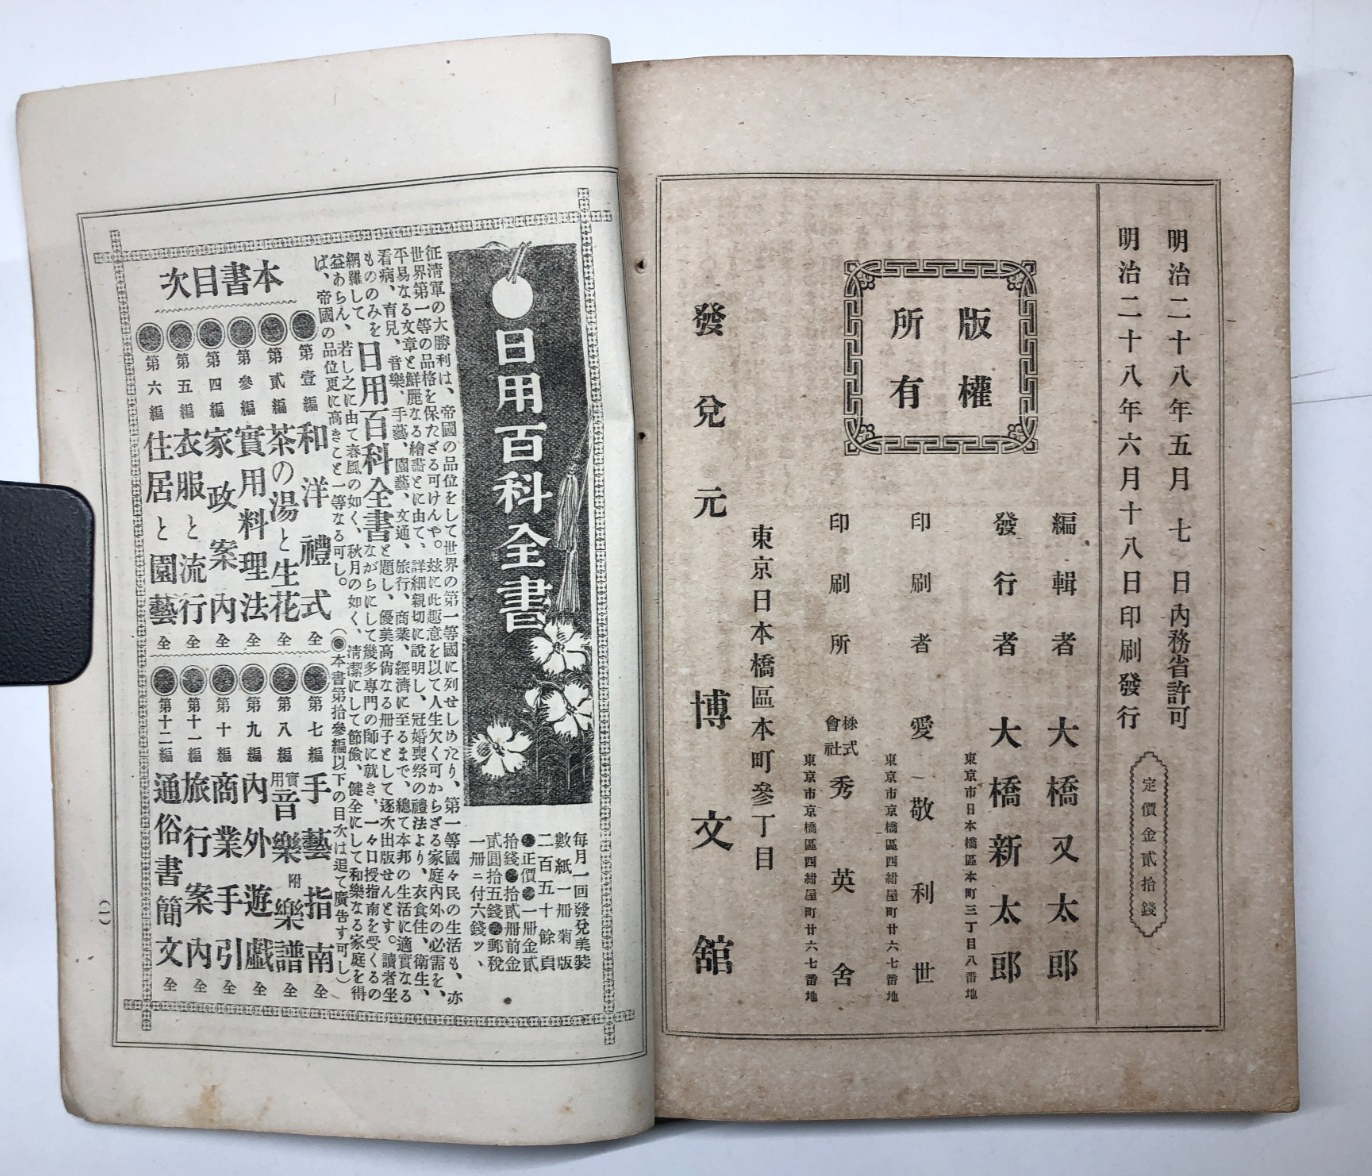 明治二十八年五月七日內務省許可
明治二十八年六月十八日印刷發行
定價金貳拾錢
版權
所有
編輯者 大橋又太郎
發行者 大橋新太郎
東京市日本橋區本町三丁目八番地
印刷者 愛敬利世
東京市京橋區四紺屋町廿六七番地
印刷所 株式會社 秀英舍
東京市京橋區四紺屋町廿六七番地
東京日本橋區本町參丁目
發兌元 博文館
日用百科全書
每月一回發兌美裝
數紙一册菊版
二百五十餘頁
◉正價◉一册金貳
拾錢◉拾貳册前金
貳圓拾五錢◉郵稅
一册ニ付六錢ッ、
征淸軍の大勝利は、帝國の品位をして世界の第一等國に列せしめたり、第一等國々民の生活も、亦
世界第一等の品格を保たざる可けんや。玆に此趣意を以て人生欠く可からざる家庭內外の必需を、
平易なる文章と鮮麗なる繪畵とに由て、詳細親切に說明し、冠婚喪祭の禮法より、衣食住、衛生、
看病、育兒、音樂、手藝、園藝、文通、旅行、商業、經濟に至るまで、總て本邦の生活に適實なる
もののみを日用百科全書と題し、優美高尙なる册子として逐次出版せんとす。讀者坐
ながらにして幾多專門の師に就き、一々口授指南を受くるの
網羅して
益あらん、若し之に由て春風の如く、秋月の如く、淸潔にして節儉、健全にして和樂なる家庭を得
ば、帝國の品位更に高きこと一等なる可し。
(◉本書第拾參編以下の目次は追て廣告す可し)
本書目次
第壹編 和洋禮式 全
第貳編 茶の湯と生花 全
第參編 實用料理法 全
第四編 家政案內 全
第五編 衣服と流行 全
第六編 住居と園藝 全
第七編 手藝指南 全
第八編 實用音樂 附樂譜 全
第九編 內外遊戲 全
第十編 商業手引 全
第十一編 旅行案內 全
第十二編 通俗書簡文 全
(一)